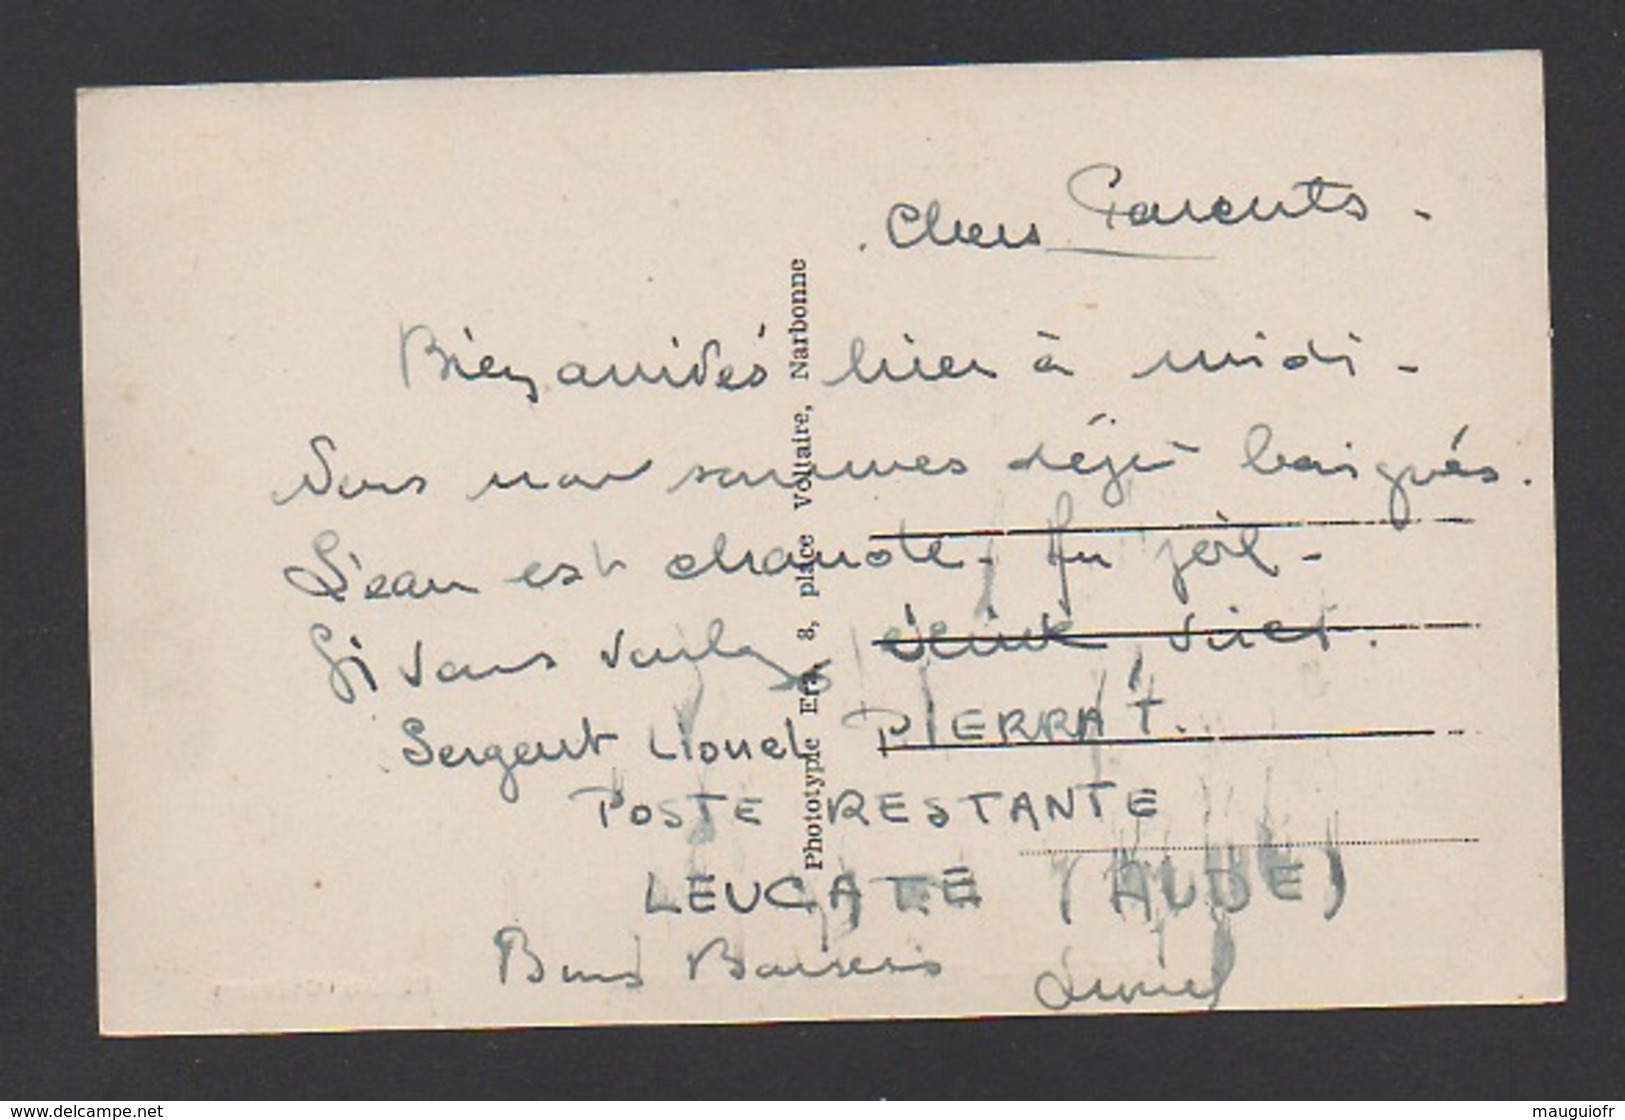 Chers Parents -
Bien arrivés hier à midi -
Nous nous sommes déjà baignés.
L'eau est chaude. Au poil -
Si vous voulez écrire voici.
Sergent Lionel PIERRAT.
POSTE RESTANTE
LEUCATE (AUDE)
Bons Baisers Lionel
Phototypie Era, 8, place Voltaire, Narbonne
www.delcampe.net
mauguiofr